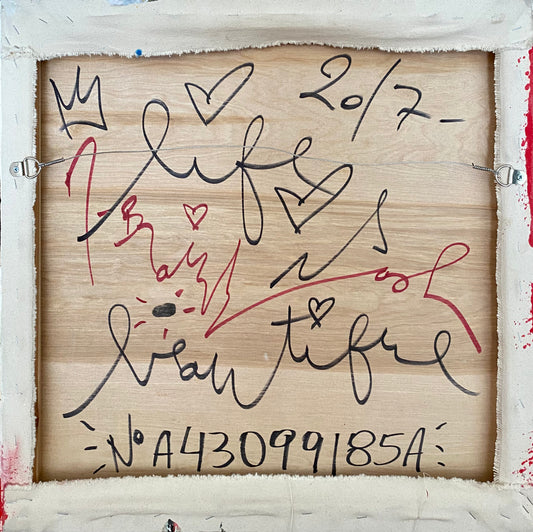 2017-
life
is
beautiful
No A43099185A